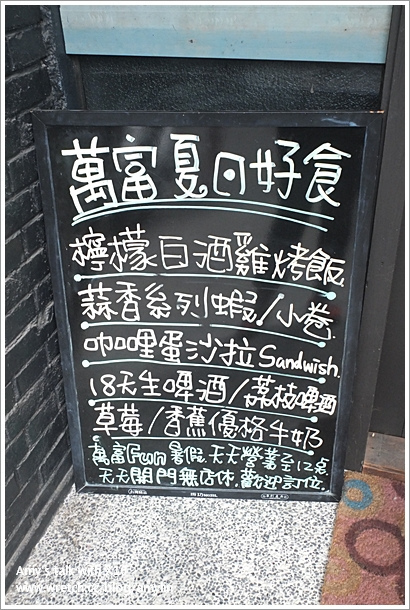 萬富夏日好食
檸檬白酒雞烤飯
蒜香系列蝦/小卷
咖哩蛋沙拉Sandwish.
18天生啤酒/荔枝啤酒
草莓/香蕉優格牛奶
萬富Fun暑假.天天營業至12點
天天開門無店休.歡迎訂位